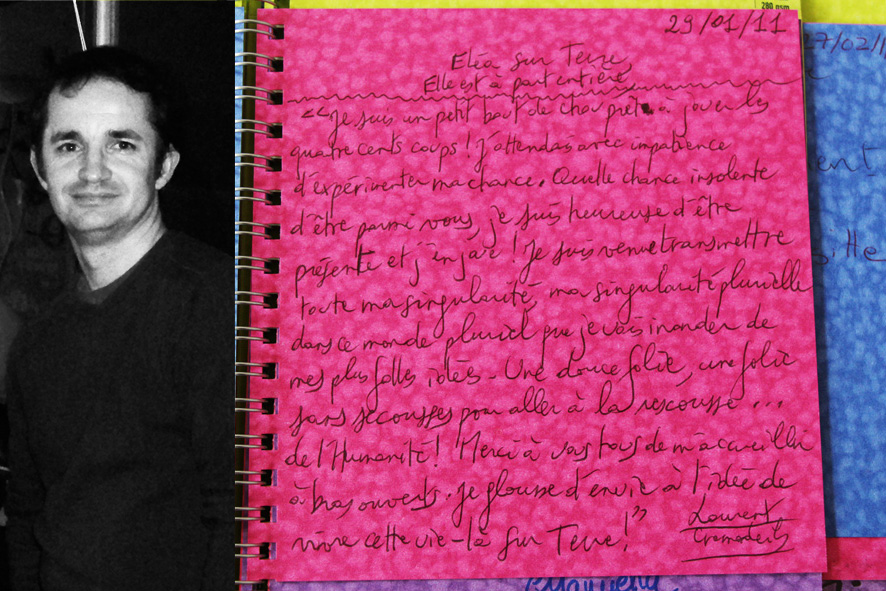 280 gsm
29/01/11
27/02/1
Eléa sur Terre,
Elle est à part entière
"Je suis un petit bout de chou prêt à jouer les
quatre cents coups ! J'attendais avec impatience
d'expérimenter ma chance. Quelle chance insolente
d'être parmi vous, je suis heureuse d'être
présente et j'en jase ! Je suis venue transmettre
toute ma singularité, ma singularité plurielle
dans ce monde pluriel que je vais inonder de
mes plus folles idées. Une douce folie, une folie
sans secousses pour aller à la rescousse ...
de l'Humanité ! Merci à vous tous de m'accueillir
à bras ouverts. Je glousse d'envie à l'idée de
vivre cette vie-là sur Terre !"
Laurent